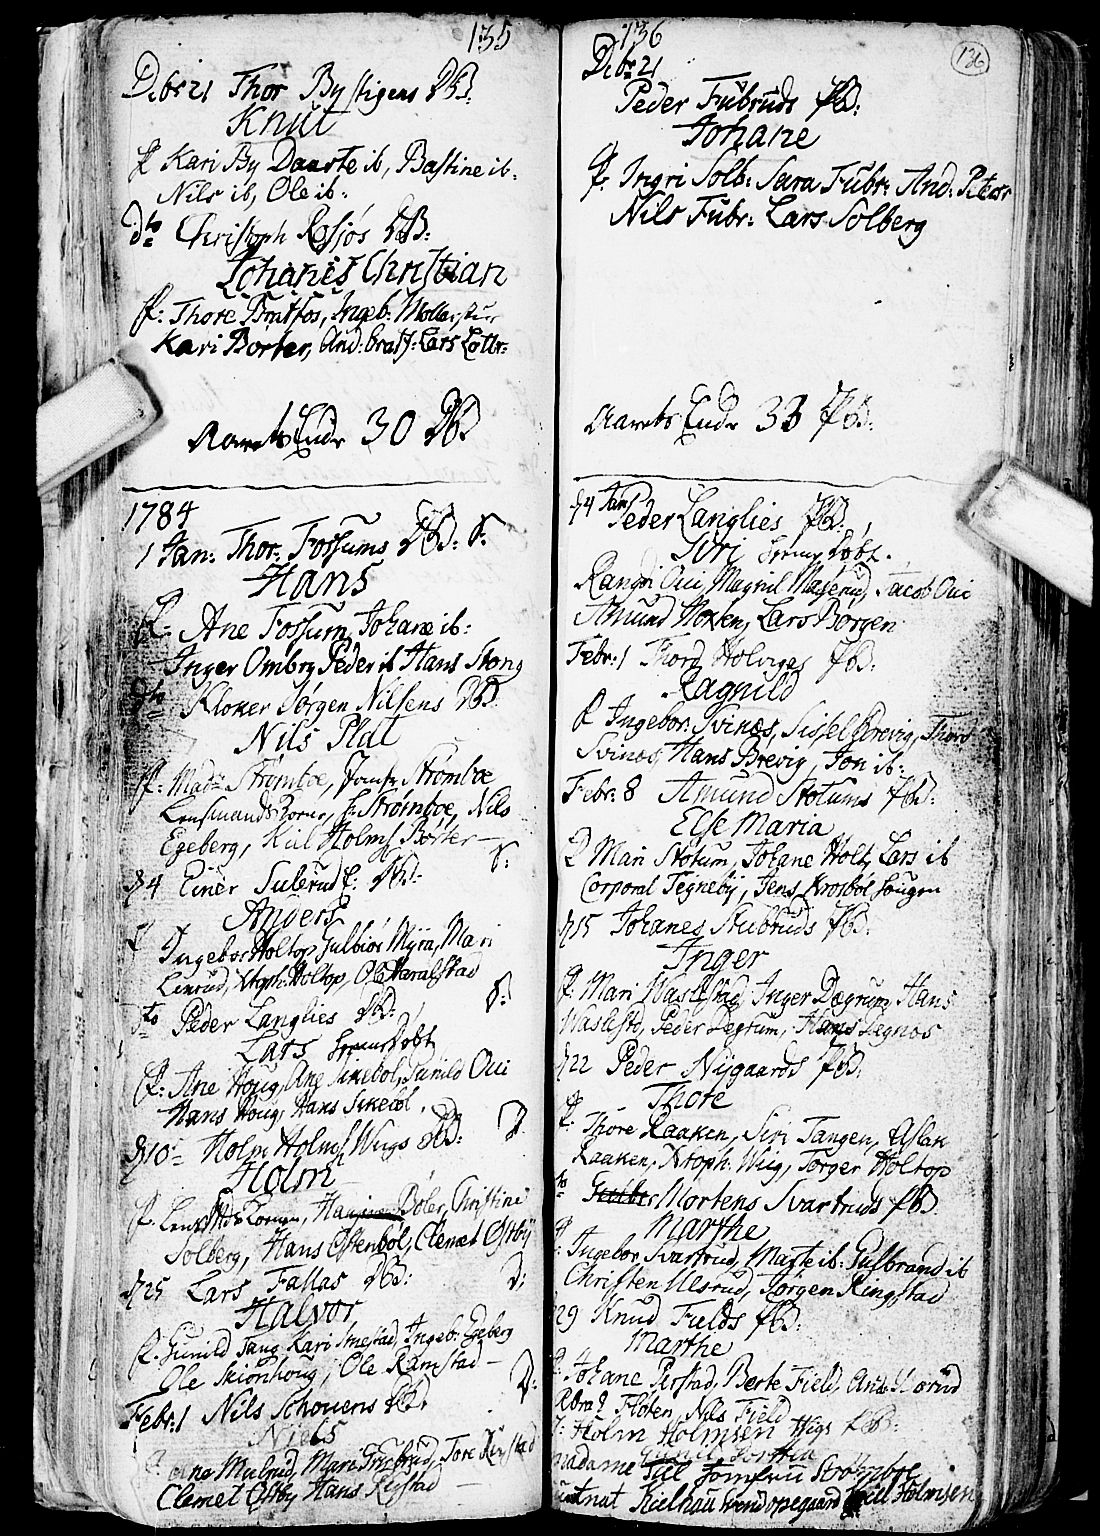 135
Debr 21 Thor By stigens DB:
Knut
F Kari By Daarte ib, Bastine ib:
Nils ib, Ole ib:
dto Christoph Rosjøs DB:
Johanes Christian
F: Thore Bratfos, Ingeb: Mollerstuen
Kari Borter, And: Bratf: Lars Lottr:
Aarets Ende 30 DB
1784
1 Jan: Thor: Fossums DB: S:
Hans
F: Ane Fossum, Johane ib:
Inger Ombry Peder ib Hans Stong
dto Kloker Jørgen Nilsens DB
Nils Plat
F: Mad: Strømboe, Jomfr Strømboe
Lensmands Borner, Hr Strømboe, Nils
Egeberg, Kiil Holmf Borter — S:
d 4 Einer Sulerud f: DB:
Anders
F Ingebor Holtop, Gulbior Myra, Mari
Linrud, Xtoph: Holtop, Ole Haralstad
dto Peder Langlies DB: S:
Lars hjemedobt
F: Ane Houg, Ane Sikebøl, Gunild Oui
Hans Houg, Hans Sikebøl.
d 10 Holm Holmf Wiigs DB: D
Holm
F: Bøler, Christine
Solberg, Hans Østenbøl, Clemet Østby
d 25 Lars Fallas DB: D:
Halvor
F: Gunild Tang Kari Smestad, Ingeb: Egeberg
Ole Skionhoug, Ole Ramstad —
Febr: 1 Nils Schouens DB: D:
Niels
F: Ane Mulrud, Mari Grubrud, Tore Kirstad
Clemet Østby Hans Kirstad —
136
136
Debr 21
Peder Fubruds PB:
Johane
F: Ingri Solb: Sara Fubr: And: Peters
Nils Fubr: Lars Solberg
Aarets Ende 33 PB:
d 4 Jan Peder Langlies PB:
Siri hjemedobt.
Rangdi Oui, Magnil Magerud, Jacob Oui
Amund Moxen, Lars Borgen
Febr: 1 Thord Holviges PB:
Ragnild
F Ingebor: Svines, Sissel Brevig, Thord
Svines, Hans Brevig, Jon ib:
Febr: 8 Amund Stotums PB:
Else Maria
F Mari Stotum, Johane Holt, Lars ib
Corporal Tegneby, Jens Krosbøl Hougen
d 15 Johanes Stubruds PB:
Inger
F. Mari Waslestad, Inger Dægrum, Hans
Waslestd, Peder Degrum, Hans Degnes
d 22 Peder Nygaards PB:
Thore
F: Thore Raaken, Siri Tangen, Aslak
Raaken, Xtoph: Wiig, Torger Holtop
Mortens Svartruds PB
Marthe
F: Ingebor Svartrud, Marte ib: Gulbrand ib
Christen Ulsrud, Jørgen Ringstad
29 Knud Fields PB:
Marthe
F: Johane Perstad, Berte Field, And:
Fløten, Nils Field
Holm Holmsen Wigs PB:
Madame Jomfru Strømboe
Kielhau Holmsen